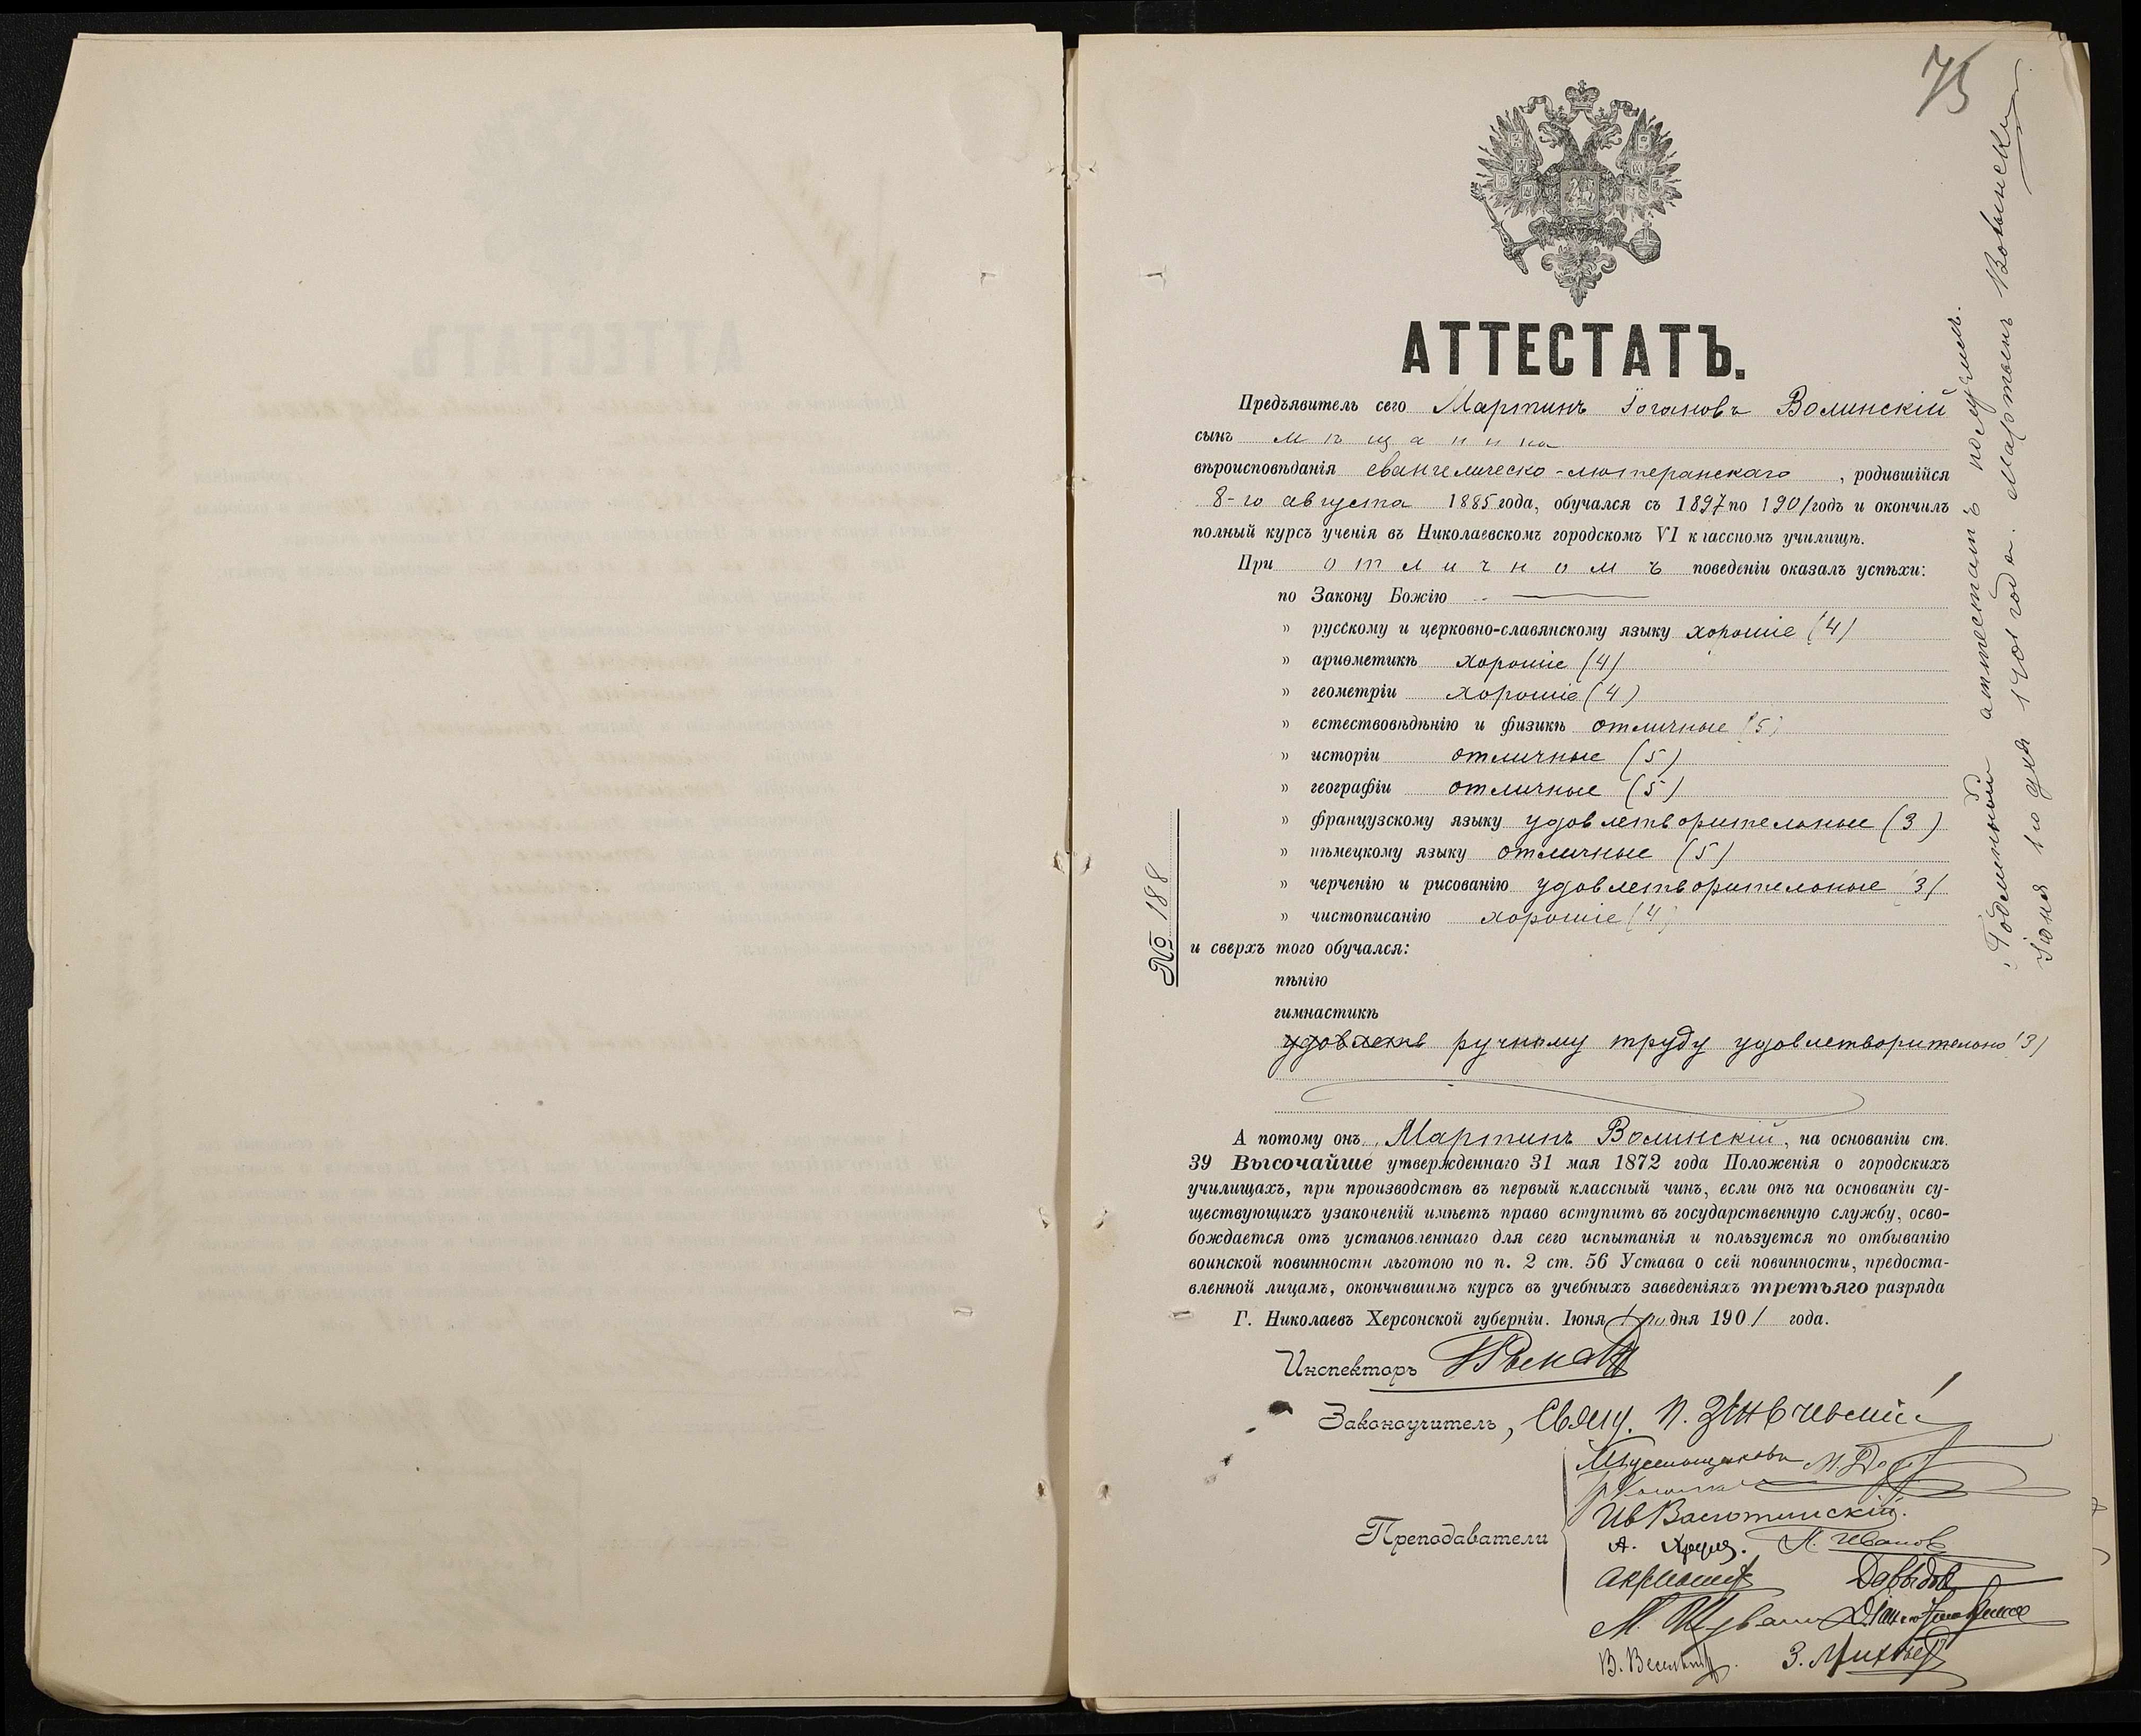 75
АТТЕСТАТЪ.
Предъявитель сего Мартинъ Іогановъ Волинскій
сынъ мѣщанина
вѣроисповѣданія евангелическо-лютеранскаго , родившійся
8-го августа 1885 года, обучался съ 1897 по 1901 годъ и окончилъ
полный курсъ ученія въ Николаевскомъ городскомъ VI классномъ училищѣ.
При отличномъ поведеніи оказалъ успѣхи:
по Закону Божію —
» русскому и церковно-славянскому языку хорошіе (4)
» ариѳметикѣ хорошіе (4)
» геометріи хорошіе (4)
» естествовѣдѣнію и физикѣ отличные (5)
» исторіи отличные (5)
» географіи отличные (5)
» французскому языку удовлетворительные (3)
» нѣмецкому языку отличные (5)
» черченію и рисованію удовлетворительные (3)
» чистописанію хорошіе (4)
и сверхъ того обучался:
пѣнію
гимнастикѣ
удовлетв ручному труду удовлетворительно (3)
А потому онъ, Мартинъ Волинскій, на основаніи ст.
39 Высочайше утвержденнаго 31 мая 1872 года Положенія о городскихъ
училищахъ, при производствѣ въ первый классный чинъ, если онъ на основаніи су-
ществующихъ узаконеній имѣетъ право вступить въ государственную службу, осво-
бождается отъ установленнаго для сего испытанія и пользуется по отбыванію
воинской повинности льготою по п. 2 ст. 56 Устава о сей повинности, предоста-
вленной лицамъ, окончившимъ курсъ въ учебныхъ заведеніяхъ третьяго разряда
Г. Николаевъ Херсонской губерніи. Іюня 1 го дня 1901 года.
Инспекторъ
Законоучитель, Свящ. П.
Преподаватели
Ив Васютинскій.
А. П. Иванов
Давыдов
М.
В. З.
№ 188
Подлинный аттестатъ получилъ.
Іюня 1го дня 1901 года. Мартынъ Волынскій